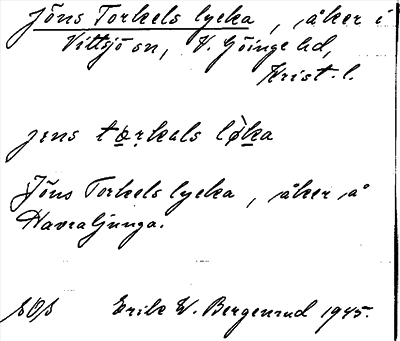 Jöns Torkels lycka, åker i
Vittsjö sn, V. Göinge hd,
Krist. l.
jens tærkals lỳka
Jöns Torkels lycka, åker å
Havraljunga.
SOS Erik W. Bergenrud 1945.